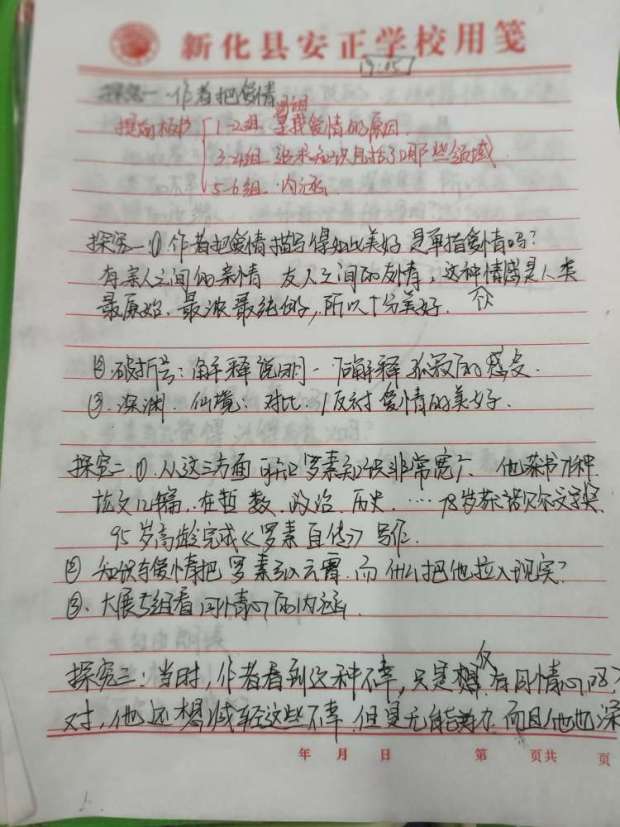 新化县安正学校用笺
19:05
探究一 作者把爱情
提前板书 1-2组 寻找爱情的原因
3-4组 追求知识包括了哪些领域
5-6组 内涵
探究一 ① 作者把爱情描写得如此美好 是单指爱情吗?
有亲人之间的亲情 友人之间的友情,这种情感是人类
最原始、最浓最纯的,所以十分美好.
② 破折号:解释说明 解释孤寂的感受.
③. 深渊. 仙境:对比. 反衬爱情的美好.
探究二 ①. 从这三方面可知罗素知识非常宽广、他著书71种
论文几篇. 在哲. 数. 政治. 历史. …… 78岁获诺贝尔文学奖
95岁高龄完成《罗素自传》写作.
② 知识与爱情把罗素引入云霄. 而什么把他拉入现实?
③. 大展5组看同情心的内涵.
探究三:当时,作者看到这种不幸,只是仅有同情心吧?
对,他还想减轻这些不幸,但是无能为力 而且他也深
年 月 日 第 页共 页